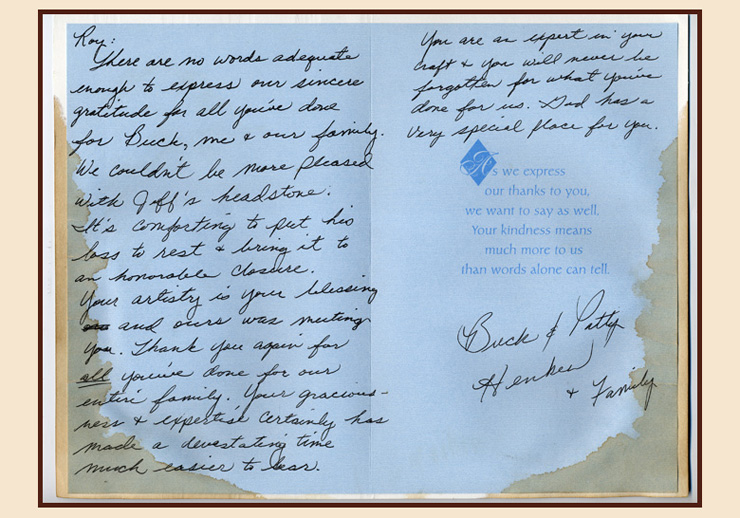 Roy:
There are no words adequate
enough to express our sincere
gratitude for all you've done
for Buck, me & our family.
We couldn't be more pleased
with Jeff's headstone.
It's comforting to put his
loss to rest & bring it to
an honorable closure.
Your artistry is your blessing
and ours was meeting
you. Thank you again for
all you've done for our
entire family. Your gracious-
ness & expertise certainly has
made a devastating time
much easier to bear.
You are an expert in your
craft & you will never be
forgotten for what you've
done for us. God has a
very special place for you.
As we express
our thanks to you,
we want to say as well,
Your kindness means
much more to us
than words alone can tell.
Buck & Patty
& Family